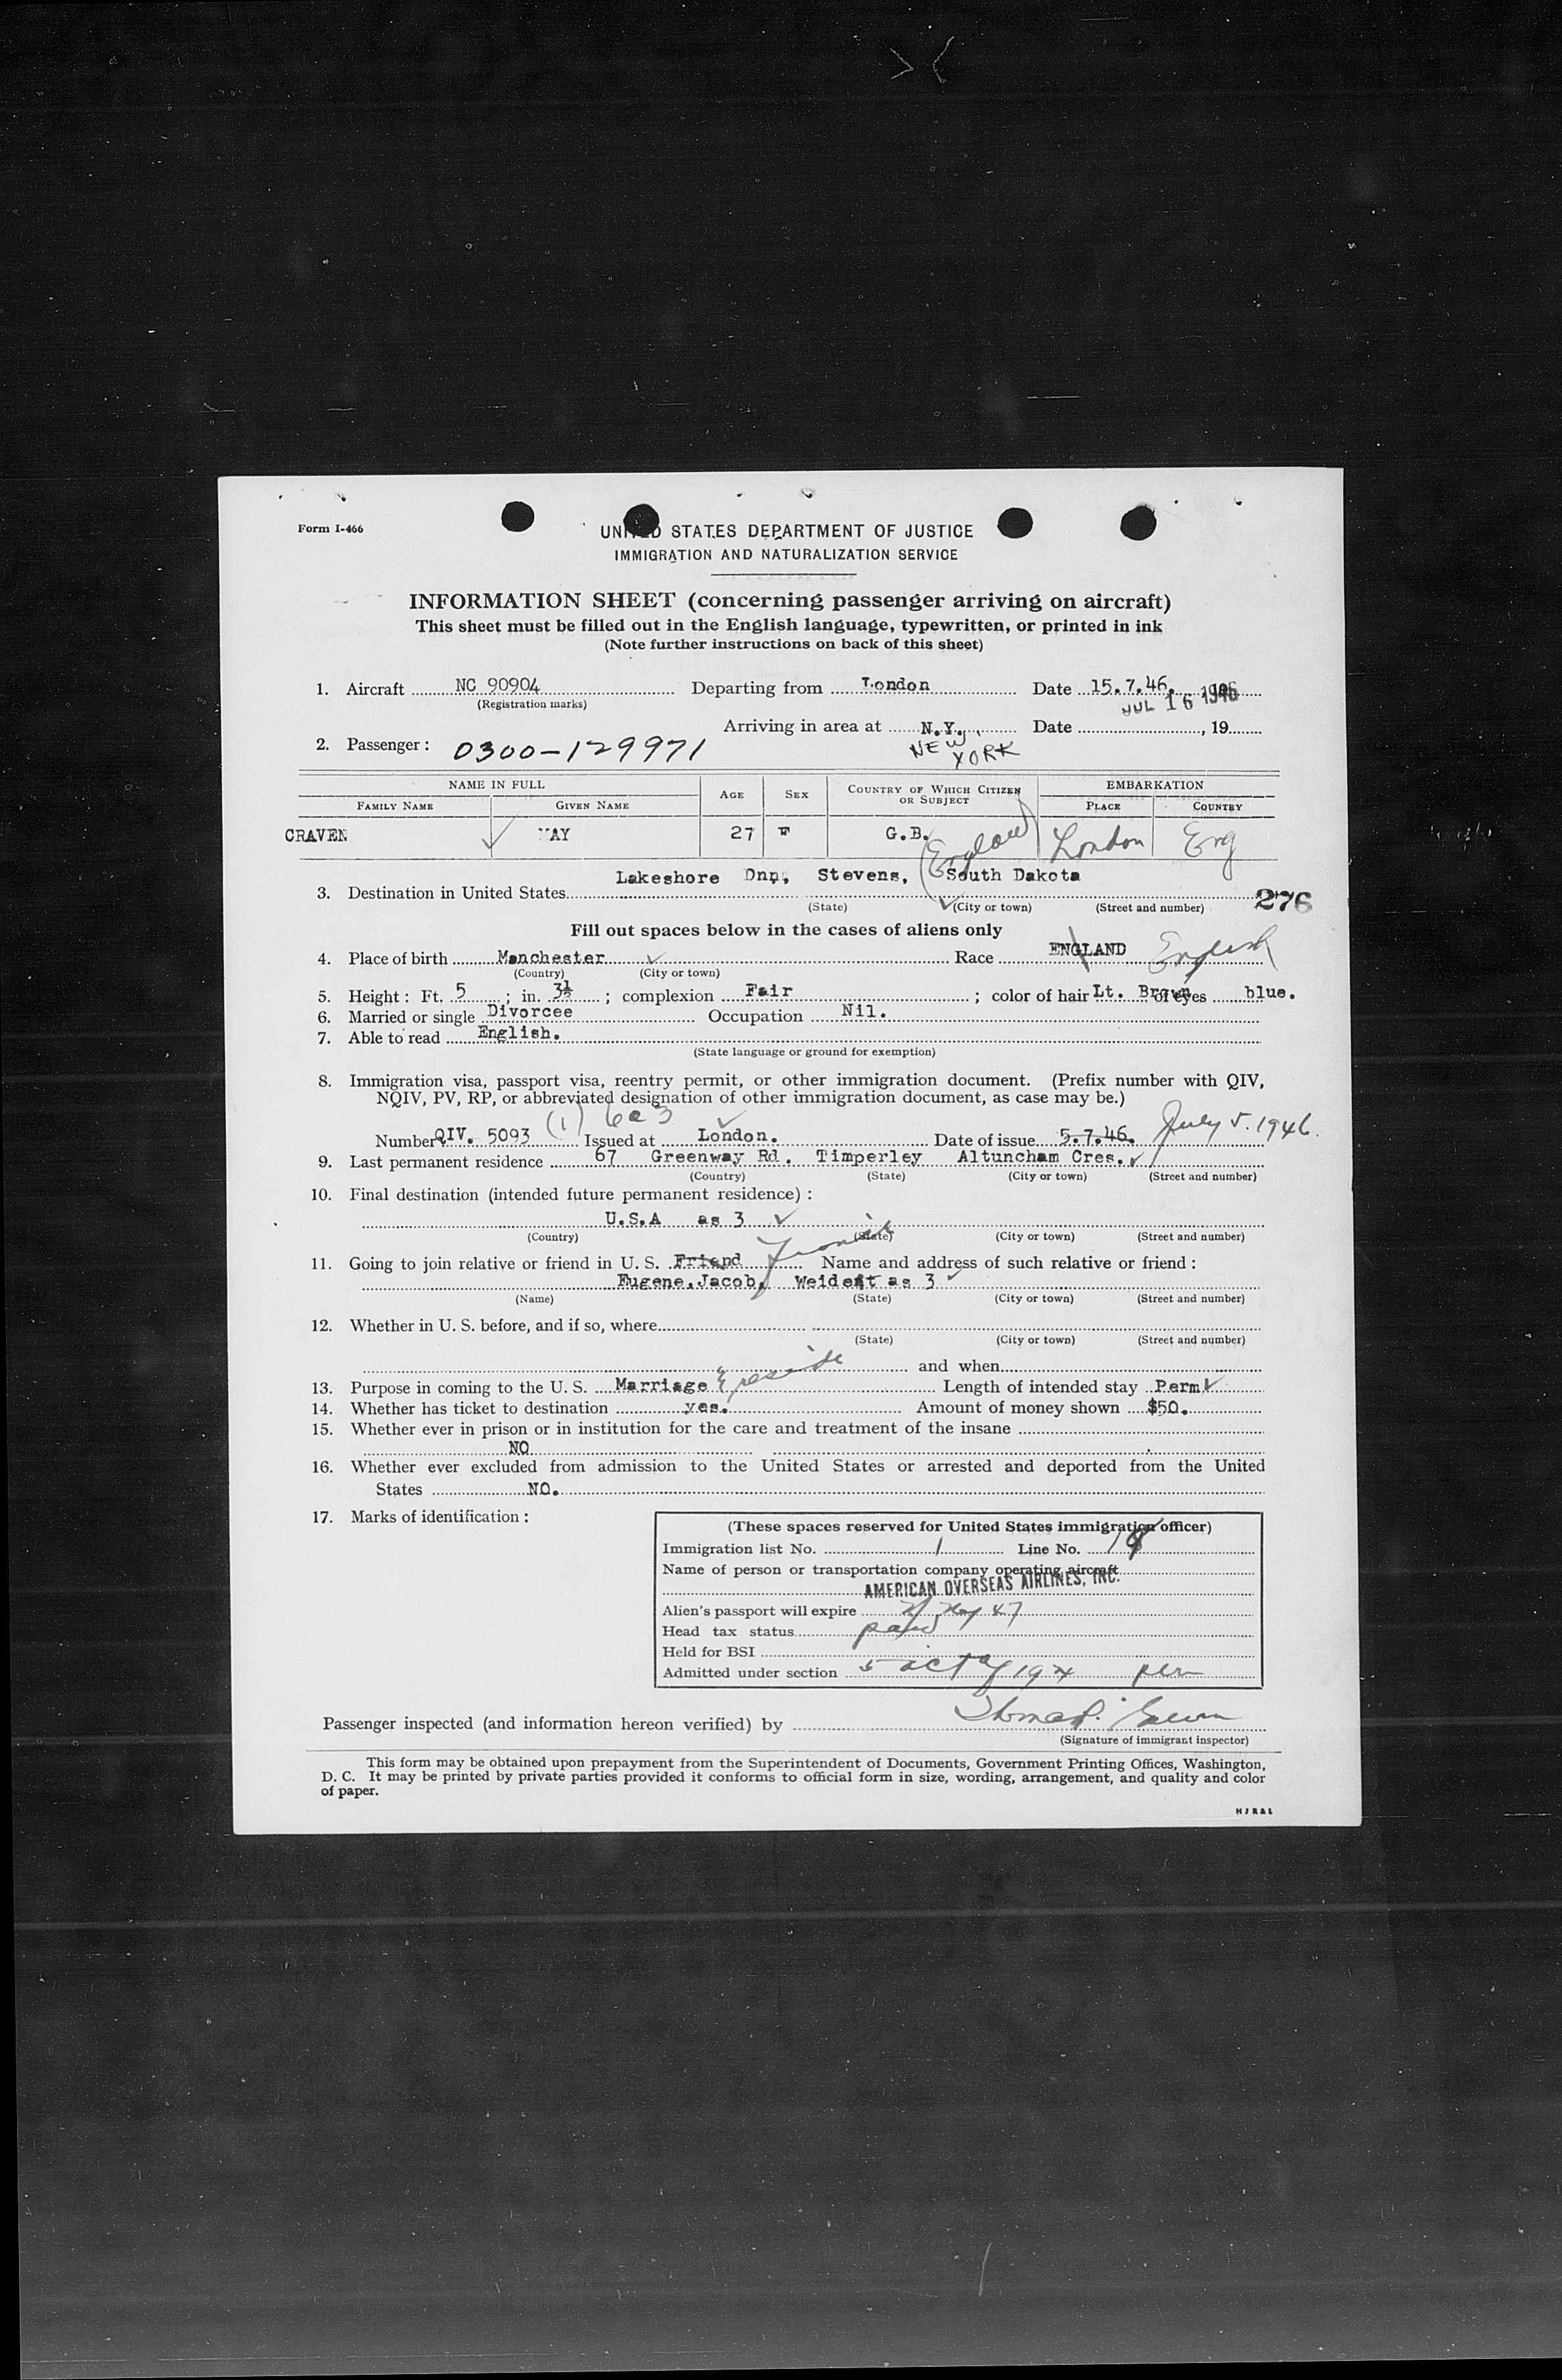 Form I-466
UNITED STATES DEPARTMENT OF JUSTICE
IMMIGRATION AND NATURALIZATION SERVICE
INFORMATION SHEET (concerning passenger arriving on aircraft)
This sheet must be filled out in the English language, typewritten, or printed in ink
(Note further instructions on back of this sheet)
1. Aircraft NC 90904 Departing from London Date 15.7.46. 1946
(Registration marks) JUL 16 1946
Arriving in area at N.Y. Date , 19
2. Passenger: 0300-129971 NEW YORK
NAME IN FULL AGE SEX COUNTRY OF WHICH CITIZEN OR SUBJECT EMBARKATION
FAMILY NAME GIVEN NAME PLACE COUNTRY
CRAVEN MAY 27 F G.B. (England) London Eng
Lakeshore Dnp, Stevens, South Dakota
3. Destination in United States
(State) (City or town) (Street and number) 276
Fill out spaces below in the cases of aliens only
4. Place of birth Manchester Race ENGLAND English
(Country) (City or town)
5. Height: Ft. 5 ; in. 3½ ; complexion Fair ; color of hair Lt. Brown of eyes blue.
6. Married or single Divorcee Occupation Nil.
7. Able to read English.
(State language or ground for exemption)
8. Immigration visa, passport visa, reentry permit, or other immigration document. (Prefix number with QIV,
NQIV, PV, RP, or abbreviated designation of other immigration document, as case may be.)
(1) 6a3
Number QIV. 5093 Issued at London. Date of issue 5.7.46. July 5. 1946.
9. Last permanent residence 67 Greenway Rd. Timperley Altuncham Cres.
(Country) (State) (City or town) (Street and number)
10. Final destination (intended future permanent residence):
U.S.A as 3
(Country) (State) (City or town) (Street and number)
11. Going to join relative or friend in U. S. Friend Name and address of such relative or friend:
Eugene, Jacob, Weident as 3
(Name) (State) (City or town) (Street and number)
12. Whether in U. S. before, and if so, where
(State) (City or town) (Street and number)
and when
13. Purpose in coming to the U. S. Marriage & reside Length of intended stay Perm
14. Whether has ticket to destination yes. Amount of money shown $50.
15. Whether ever in prison or in institution for the care and treatment of the insane
NO
16. Whether ever excluded from admission to the United States or arrested and deported from the United
States NO.
17. Marks of identification:
(These spaces reserved for United States immigration officer)
Immigration list No. 1 Line No. 18
Name of person or transportation company operating aircraft
AMERICAN OVERSEAS AIRLINES, INC.
Alien's passport will expire May 47
Head tax status paid
Held for BSI
Admitted under section 5 act of 1924 per
Passenger inspected (and information hereon verified) by
(Signature of immigrant inspector)
This form may be obtained upon prepayment from the Superintendent of Documents, Government Printing Offices, Washington,
D. C. It may be printed by private parties provided it conforms to official form in size, wording, arrangement, and quality and color
of paper.
HJR&L